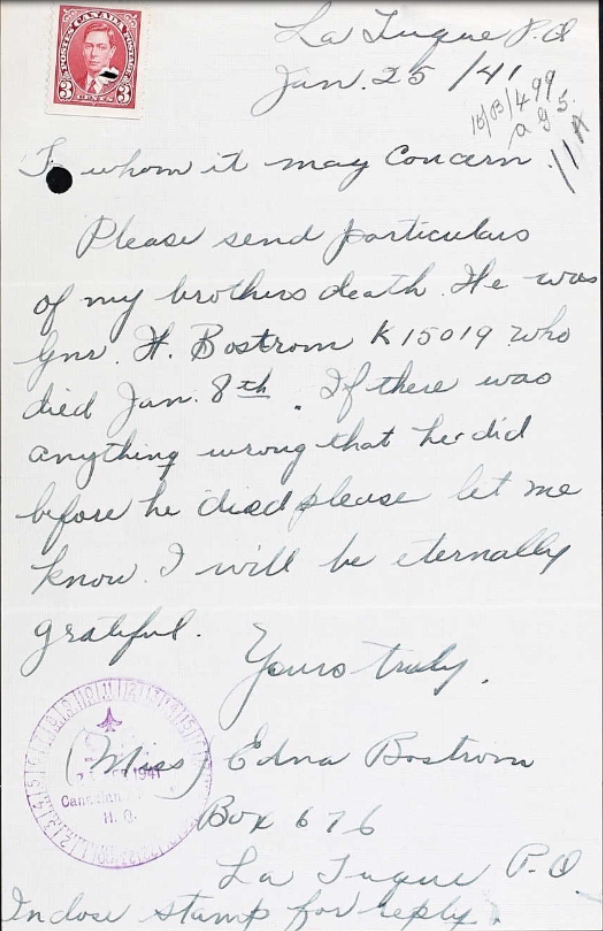 POSTES CANADA POSTAGE
3 3
CENTS
La Tuque P.Q
Jan. 25 /41
15/B/499
a g 5.
11A
To whom it may Concern.
Please send particulars
of my brothers death. He was
Gnr. H. Bostrom K 15019 who
died Jan. 8th. If there was
anything wrong that he did
before he died please let me
know. I will be eternally
grateful.
Yours truly,
(Miss) Edna Bostrom
1941
Canadian
H. Q.
Box 676
La Tuque P.Q.
Inclose stamp for reply.